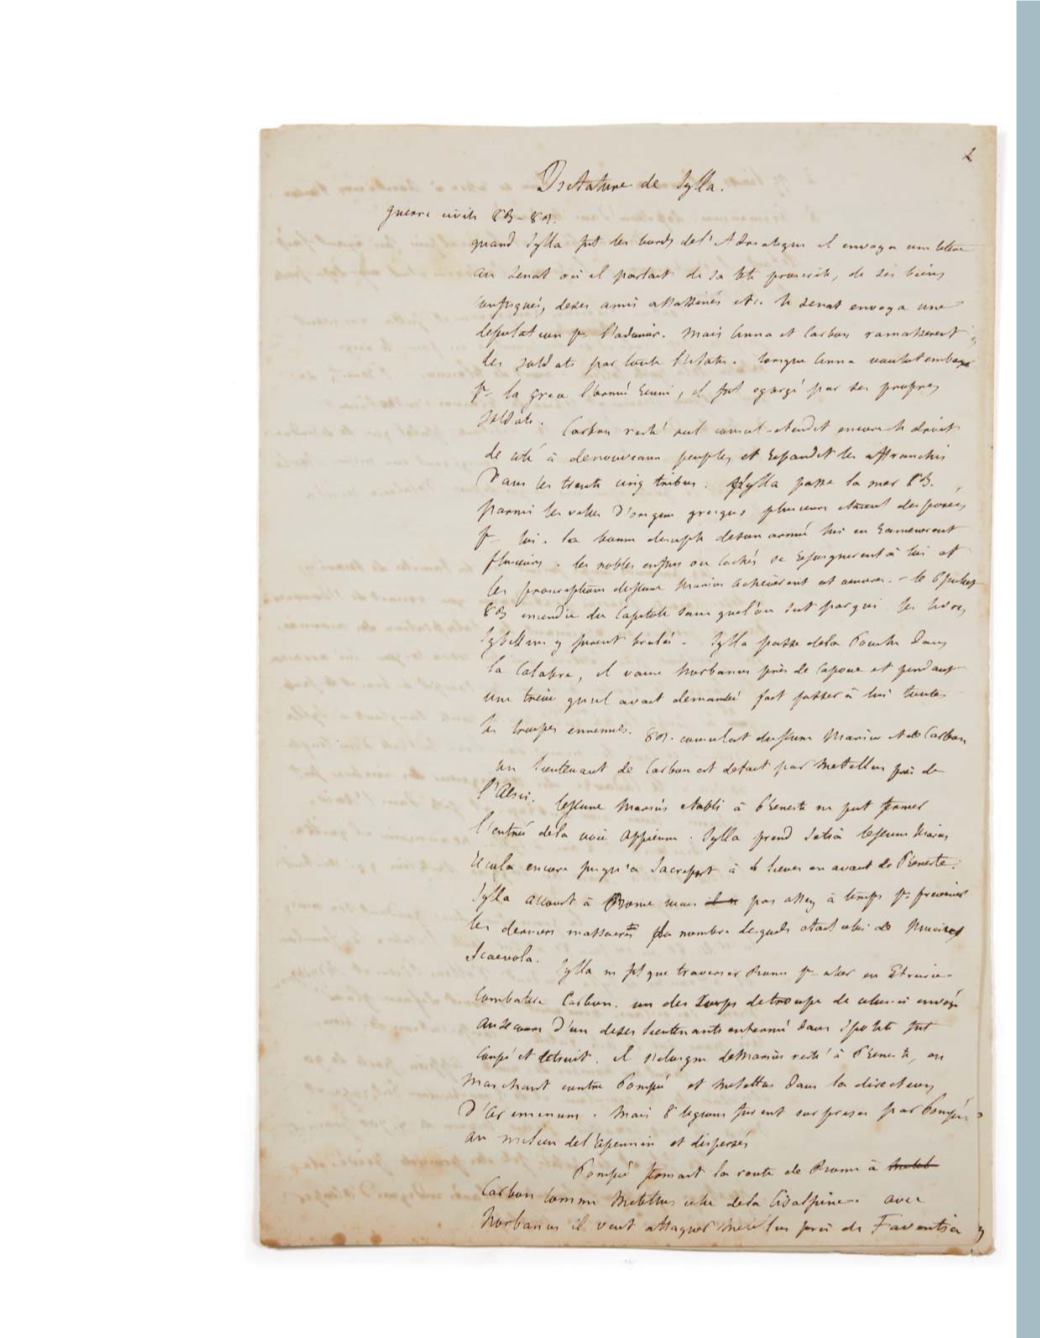 2
Dictature de Sylla.
guerre civile 83-82.
quand Sylla fut les bords de l'Adriatique il envoya une lettre
au senat où il parlait de sa tête proscrite, de ses biens
confisqués, de ses amis assassinés etc. le senat envoya une
deputation pr l'adoucir. mais Cinna et Carbon ramassèrent
des soldats par toute l'Italie. lorsque Cinna voulut embarquer
pr la Grece l'armée reunie, il fut egorgé par ses propres
soldats. Carbon resté seul consul etendit encore le droit
de cité à de nouveaux peuples et repandit les affranchis
Dans les trente cinq tribus. Sylla passe la mer 83.
parmi les villes d'origine grecque plusieurs etaient disposées
pr lui. la bonne discipline de son armée lui en ramenerent
plusieurs. les nobles enfuis ou cachés se rejoignerent à lui et
les proscriptions du jeune Marius acheverent cet oeuvre. - le 6 juillet
83 incendie du Capitole sans que l'on sut par qui les livres
sybellins y furent brulés. Sylla passe de la Pouille dans
la Calabre, il vainc Norbanus près de Capoue et pendant
une treve qu'il avait demandée fait passer à lui toutes
les troupes ennemies. 82. consulat du jeune Marius et de Carbon
un lieutenant de Carbon est defait par Metellus près de
l'Aesis. le jeune Marius etabli à Preneste ne put fermer
l'entrée de la voie Appienne. Sylla prend Setia le jeune Marius
recula encore jusqu'à Sacriport à 4 lieues en avant de Preneste.
Sylla accourt à Rome mais pas assez à temps pr prevenir
les derniers massacres du nombre desquels etait celui de Mucius
Scaevola. Sylla ne fit que traverser Rome pr aller en Etrurie
combattre Carbon. un des corps de troupe de celui-ci envoyé
au secours d'un de ses lieutenants enfermé dans Spolete fut
coupé et detruit. il s'eloigne de Marius resté à Preneste, en
marchant contre Pompée et Metellus dans la direction
d'Ariminum. Mais 8 legions furent surprises par Pompée
au milieu de l'Apennin et dispersés
Pompée fermait la route de Rome à
Carbon comme Metellus celle de la Cisalpine. avec
Norbanus il veut attaquer Metellus près de Faventia